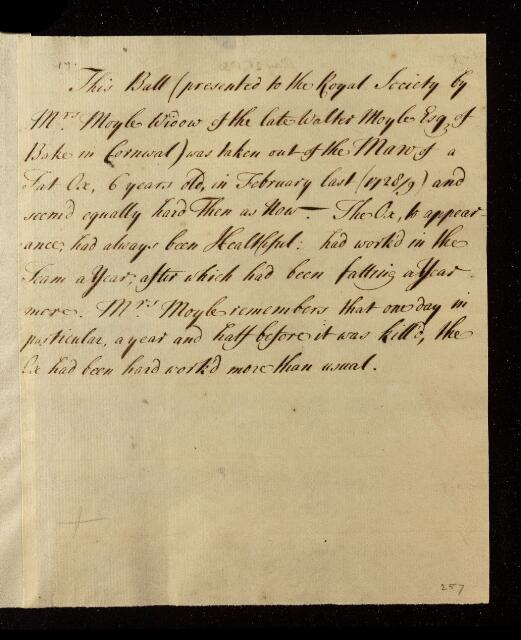 17.
This Ball (presented to the Royal Society by
Mrs. Moyle Widow of the late Walter Moyle Esq. of
Bake in Cornwal) was taken out of the Maw of a
Fat Ox, 6 years old, in February last (1728/9) and
seem'd equally hard Then as Now — The Ox, to appear-
ance, had always been Healthful: had work'd in the
Team a Year; after which had been fatting a Year
more. Mrs. Moyle remembers that one day in
particular, a year and half before it was kill'd, the
Ox had been hard work'd more than usual.
257